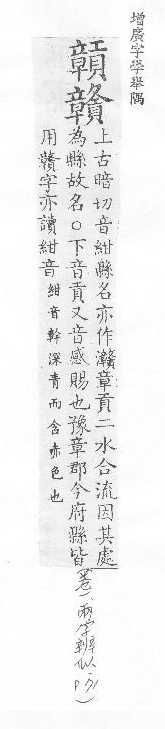 增廣字學舉隅
贑贛
上古暗切音紺縣名亦作灨章貢二水合流因其處
為縣故名〇下音貢又音感賜也豫章郡今府縣皆
用贛字亦讀紺音 紺音幹深青而含赤色也
(卷二、兩字辨似、